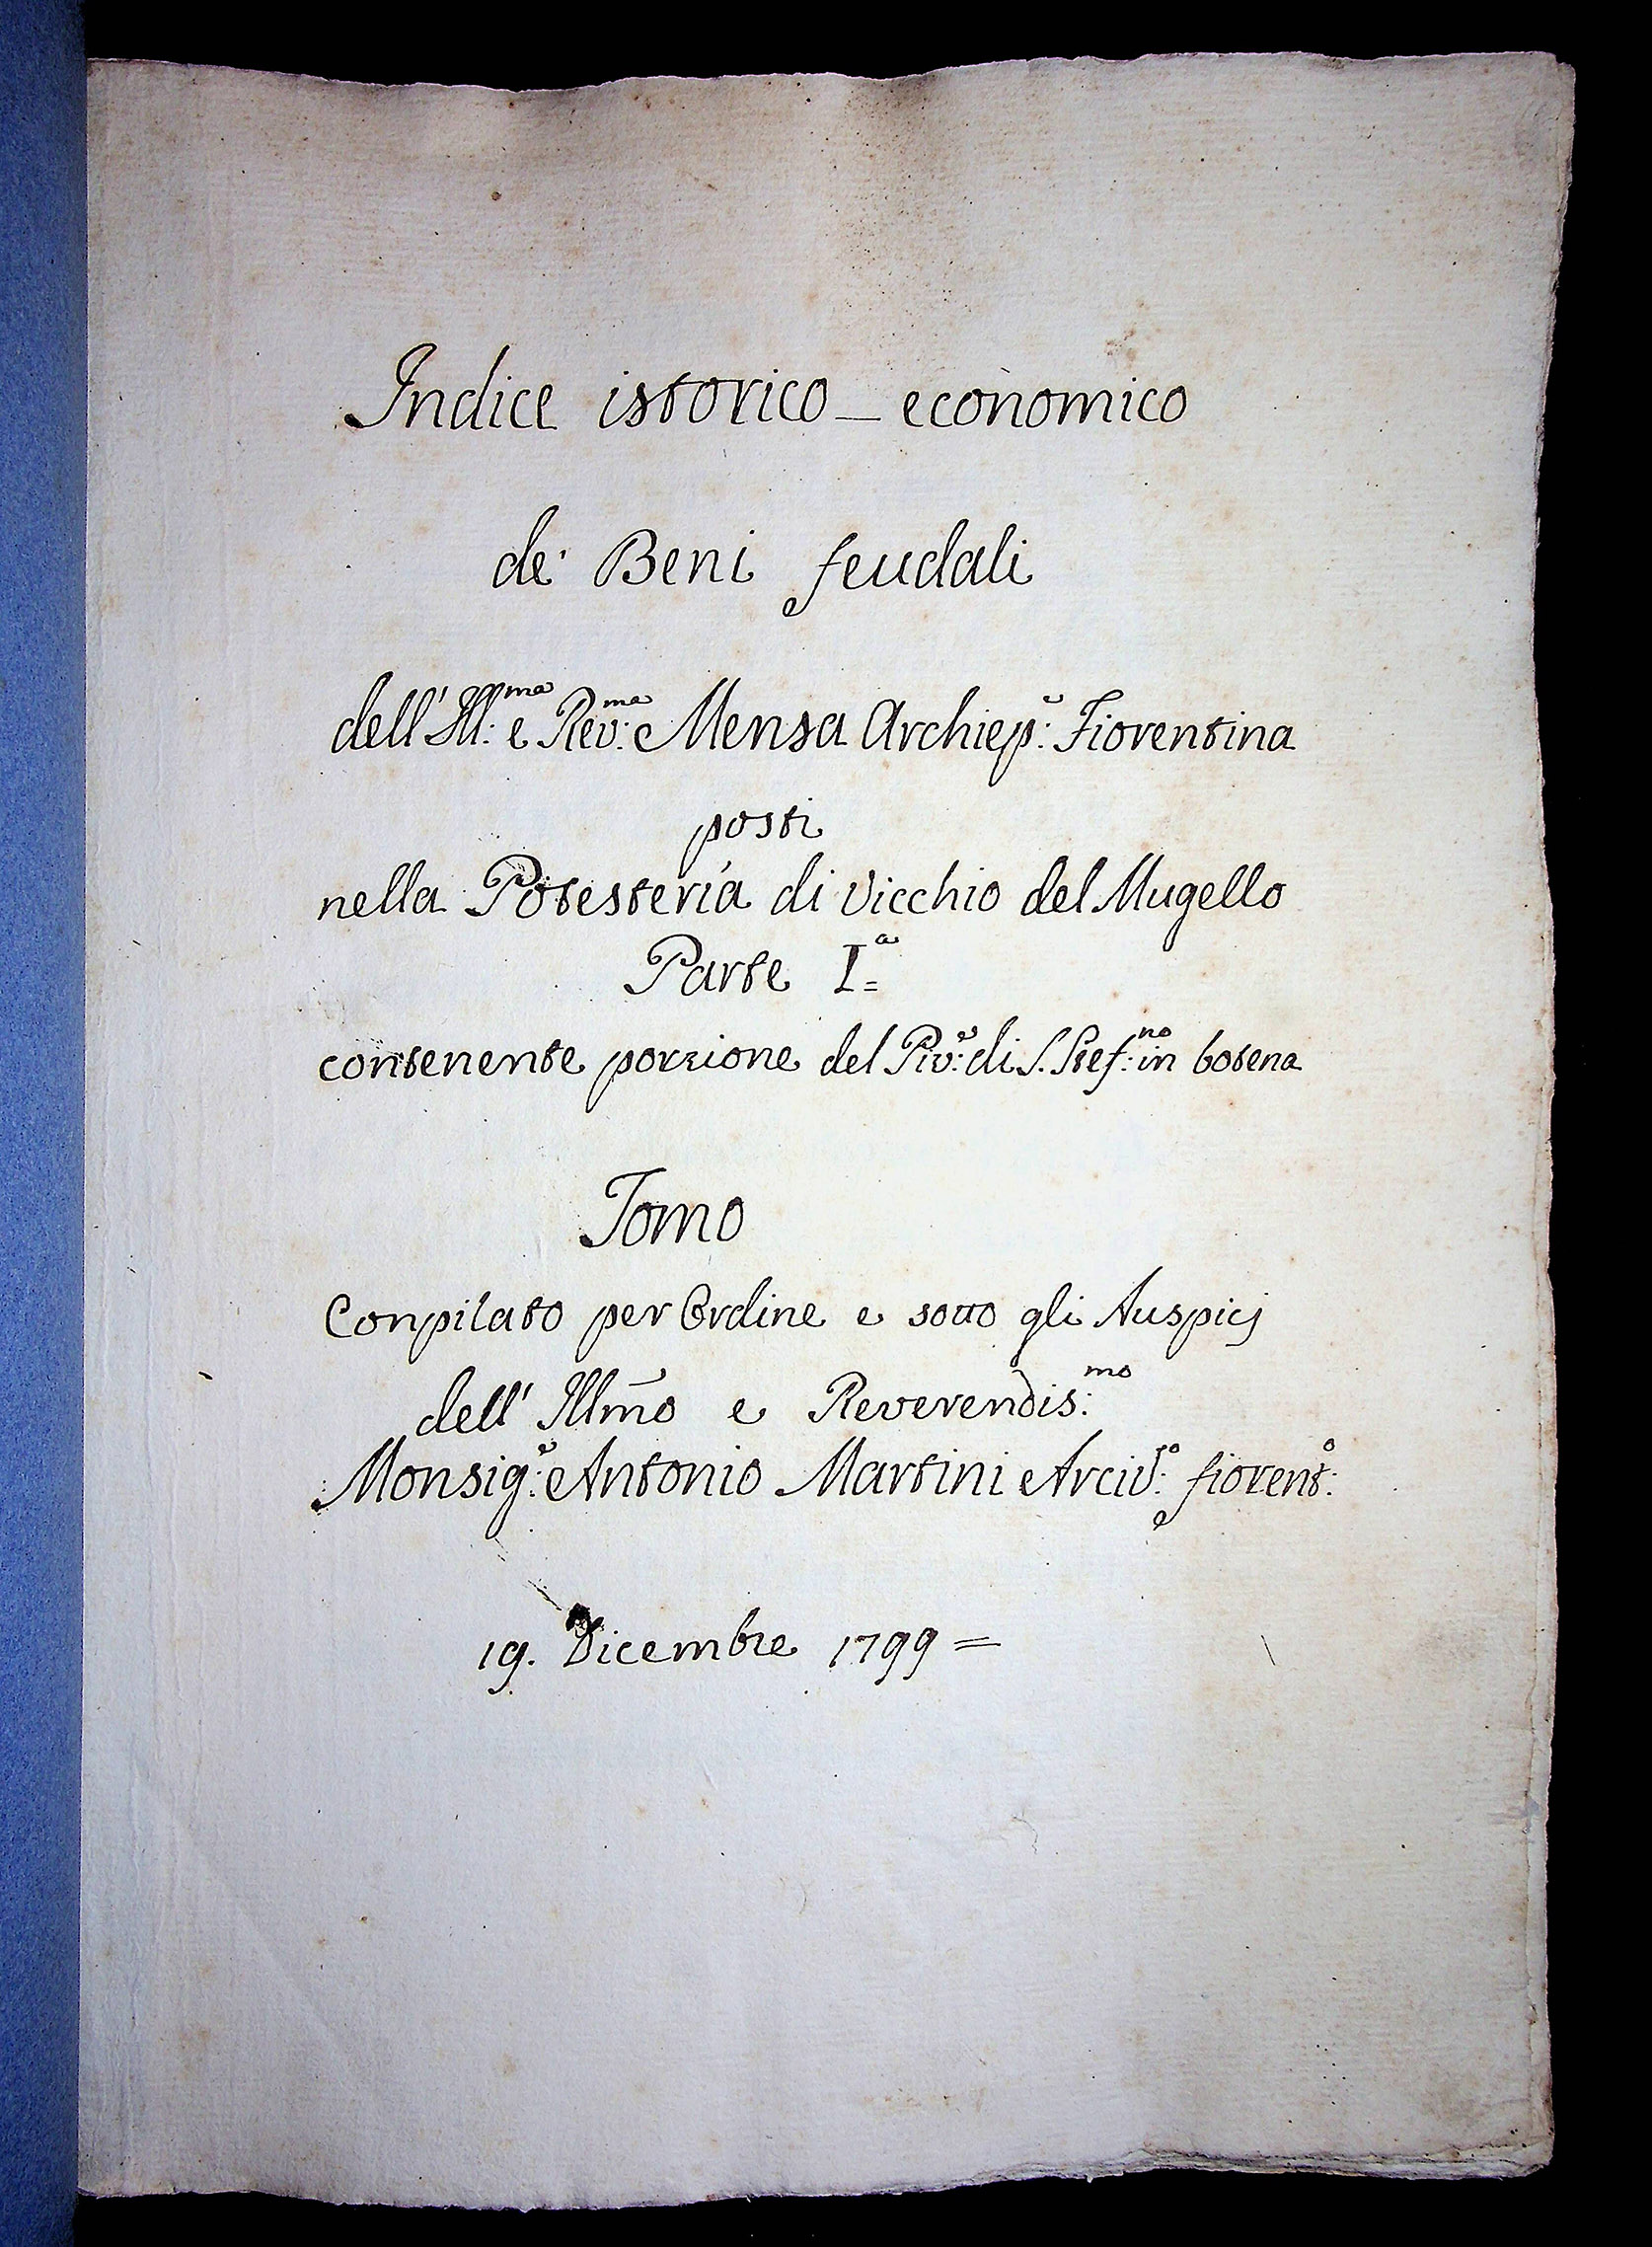 Indice istorico - economico
de' Beni feudali
dell' Ill:ma e Rev:ma Mensa Archiep:e Fiorentina
posti
nella Potesteria di Vicchio del Mugello
Parte I.a =
contenente porzione del Piv:e di S. Stef:no in botena
Tomo
Conpilato per Ordine e sotto gli Auspicj
dell' Illmo e Reverendis:mo
Monsig:e Antonio Martini Arciv:o fiorent:o
19. Dicembre 1799 =